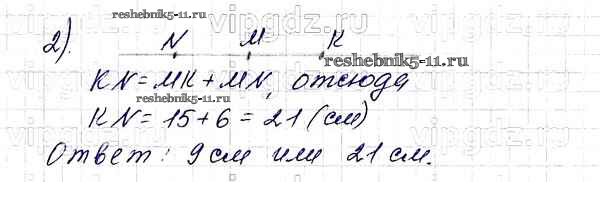 vipgdz.ru vipgdz.ru vipgdz.ru
reshebnik5-11.ru
2). N M K
reshebnik5-11.ru
KN = MK + MN, отсюда
reshebnik5-11.ru
KN = 15 + 6 = 21 (см)
vipgdz.ru vipgdz.ru
Ответ: 9 см или 21 см.